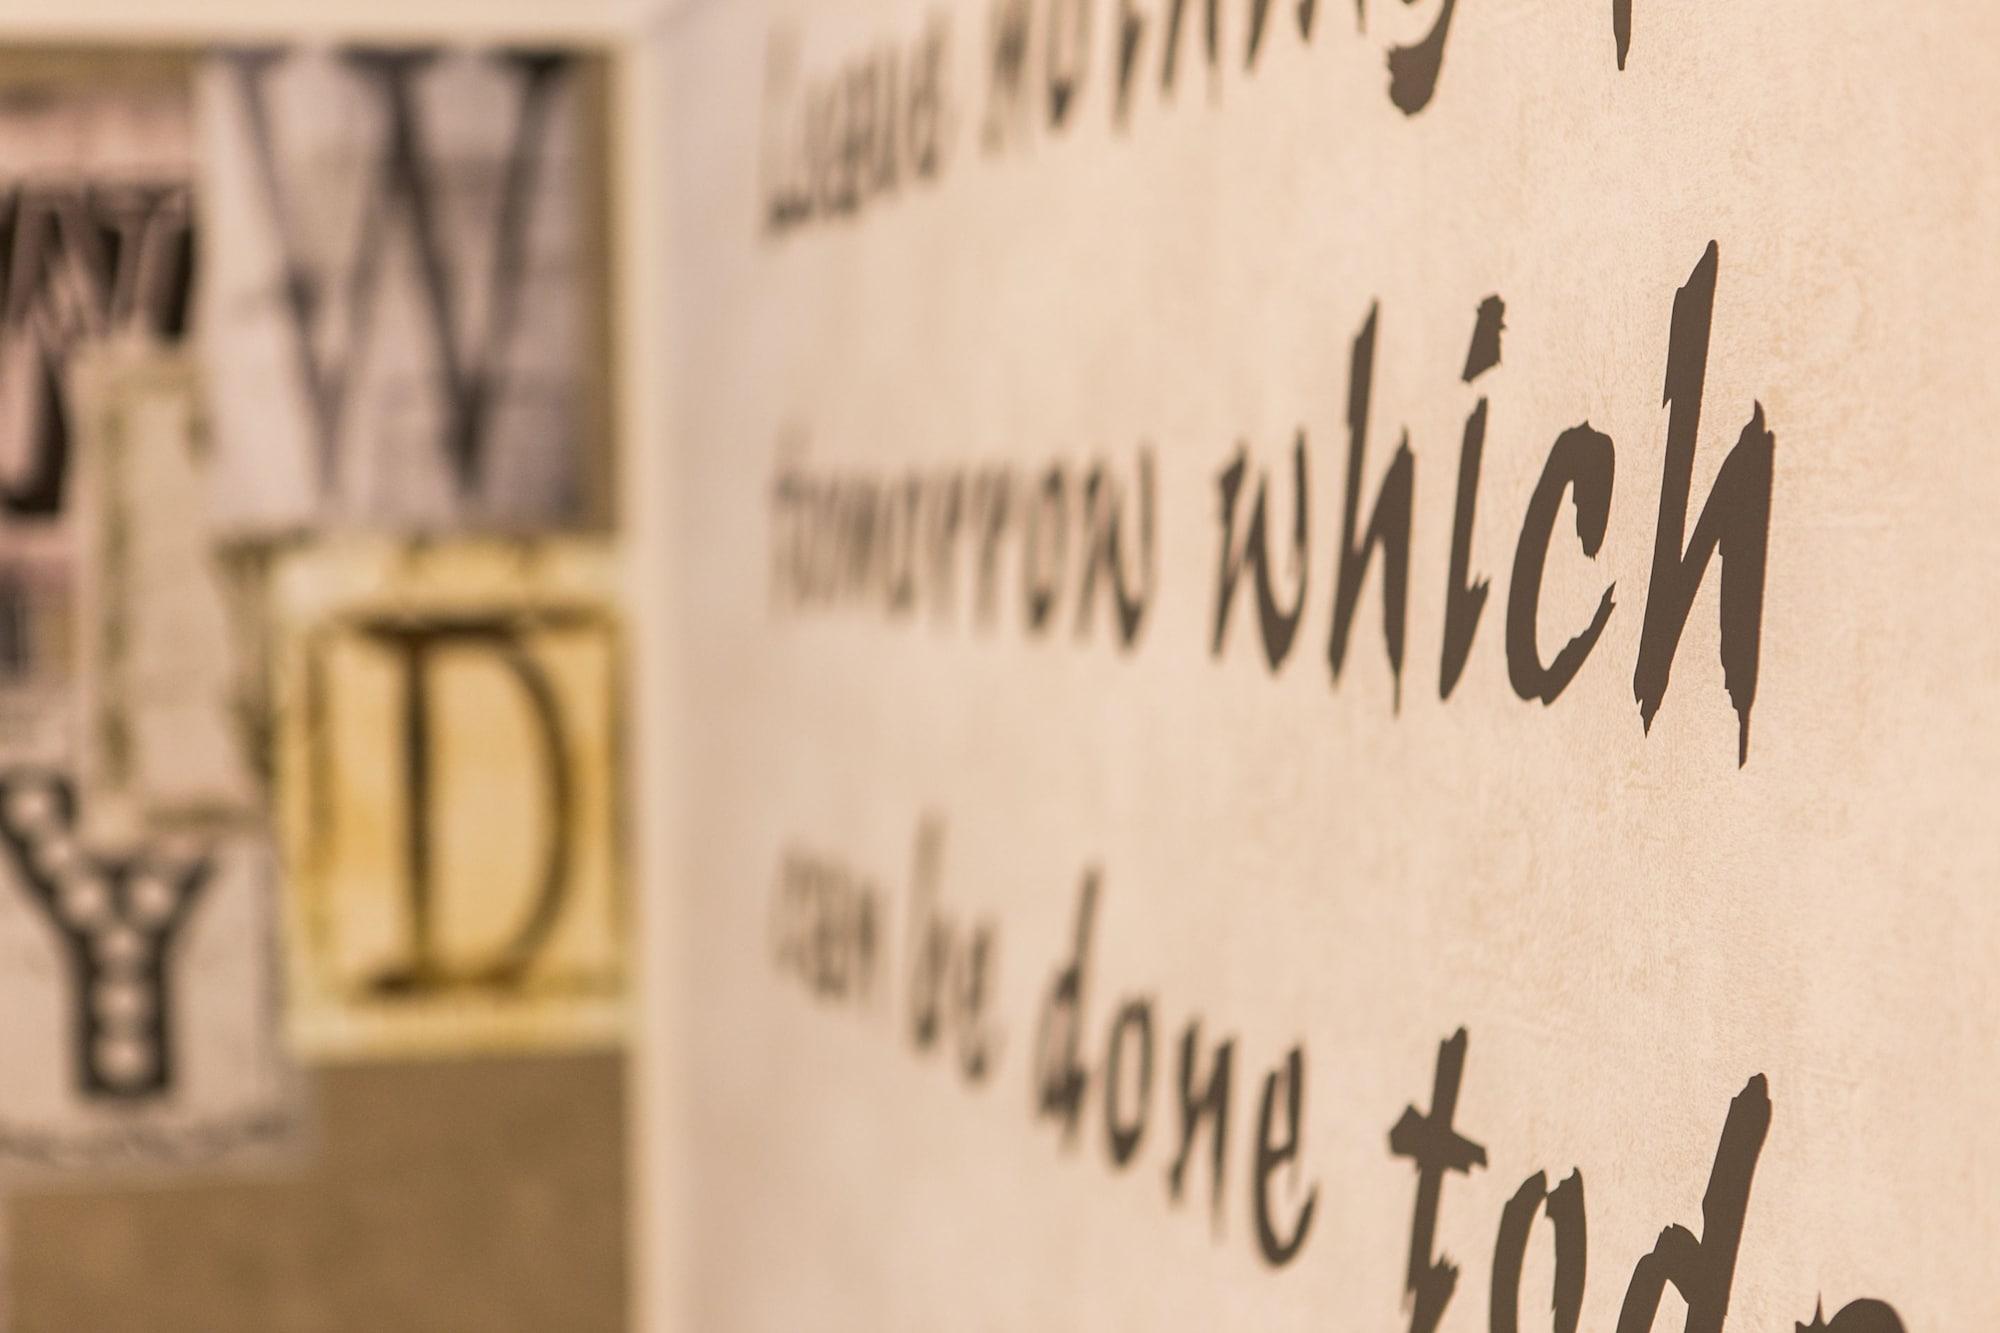 Leave nothing
tomorrow which
can be done tod
W
D
Y